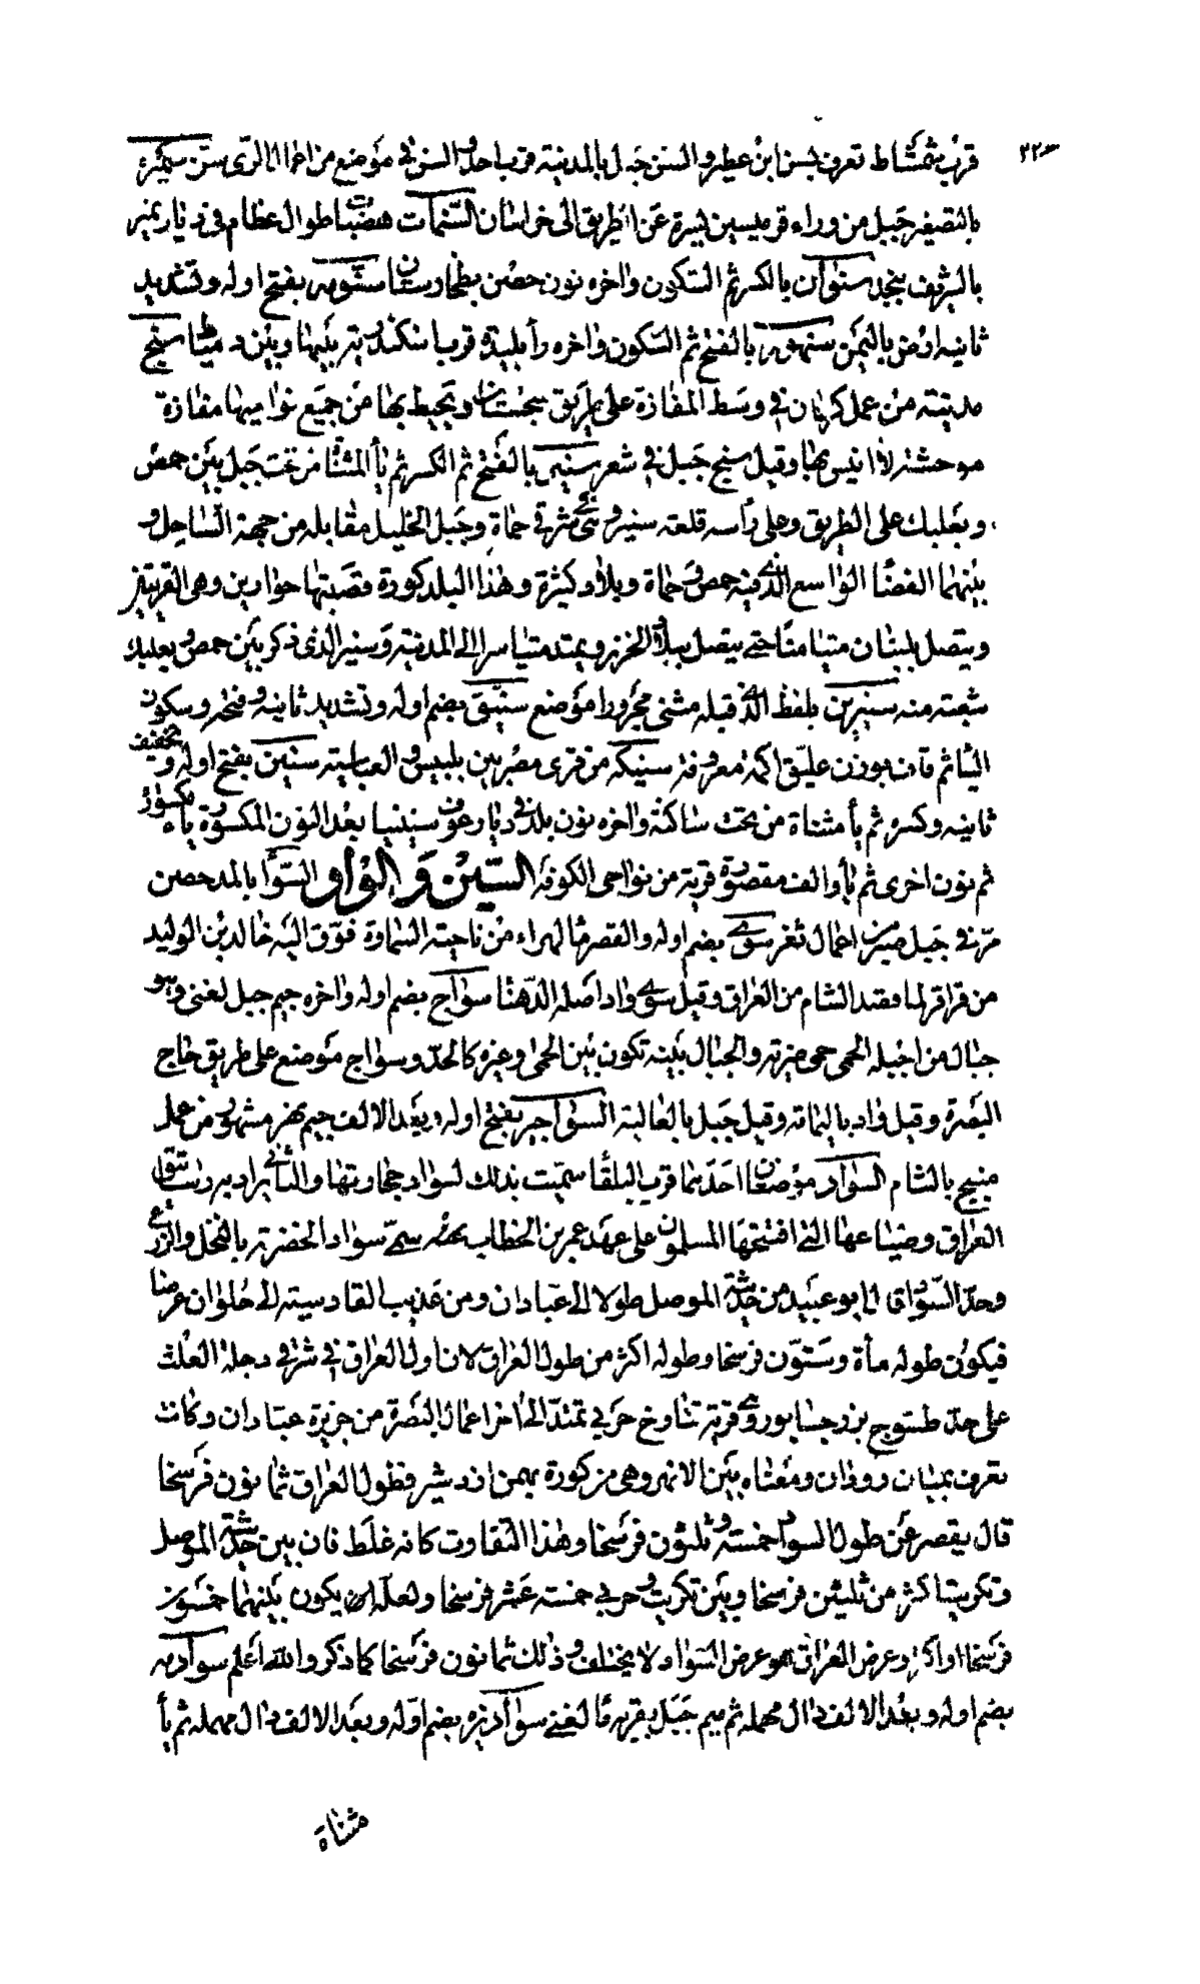 ٢٢٠
قرب شمشاط تعرف بسن ابن عطير والسن جبل بالمدينة قرب احد والسن في موضع من اعمال الري سن سميرة
بالتصغير جبل من وراء قرميسين يسرة عن الطريق الى خراسان السنمات هضبات طوال عظام في ديار نمير
بالشريف بنجد سنوان بالكسر ثم السكون واخره نون حصن بطخارستان سنومه بفتح اوله وتشديد
ثانيه ارض باليمن سنهور بالفتح ثم السكون واخره رأ بليدة قرب اسكندرية بينها وبين دمياط سنيج
مدينة من عمل كرمان في وسط المفازة على طريق سجستان ويحيط بها من جميع نواحيها مفازة
موحشة لا انيس بها وقيل سنيج جبل في شعر سنير بالفتح ثم الكسر ثم يأ المثناة من تحت جبل بين حمص
وبعلبك على الطريق وعلى رأسه قلعة سنير وهي شرقي حماة وجبل الخليل مقابله من جهة الساحل و
بينهما الفضا الواسع الذي فيه حمص وحماة وبلاد كثيرة وهذا البلد كورة قصبتها حوارين وهي القريتين
ويتصل بلبنان متيامنا حتى يتصل ببلاد الخزر ويمتد متياسرا الى المدينة وسنير الذي ذكر بين حمص وبعلبك
شعبة منه سنيرين بلفظ الذي قبله مثنى مجرورا موضع سنيق بضم اوله وتشديد ثانيه وفتحه وسكون
اليا ثم قاف بوزن عليق اكمة معروفة سنيكه من قرى مصر بين بلبيس والعباسية سنين بفتح اوله وتخفيف
ثانيه وكسره ثم يأ مثناة من تحت ساكنة واخره نون بلد في ديار عوف سنينيا بعد النون المكسورة ياء مكسورة
ثم نون اخرى ثم يأ والف مقصورة قرية من نواحي الكوفة السين والواو السوا بالمد حصن
مر في جبل صبر من اعمال تغر سوى بضم اوله والقصر ما لبهراء من ناحية السماوة فوق اليه خالد بن الوليد
من قراقر لما قصد الشام من العراق وقيل سوى واد اصله الدهنا سواج بضم اوله واخره جيم جبل لغنى وهو
جبال من اخيلة الحمى حمى ضرية والجبال بينه تكون بين الحمى وغيره كالحد وسواج موضع على طريق حاج
البصرة وقيل واد باليمامة وقيل جبل بالعالية السواجير بفتح اوله وبعد الالف جيم نهر مشهور من عمل
منبج بالشام السواد موضعان احدهما قرب البلقا سميت بذلك لسواد حجارتها والثاني يراد به رساتيق
العراق وضياعها التي افتتحها المسلمون على عهد عمر بن الخطاب سمي سوادا لخضرته بالنخل والزرع
وحد السواد قال ابو عبيد من حديثة الموصل طولا الى عبادان ومن عذيب القادسية الى حلوان عرضا
فيكون طوله مأة وستون فرسخا وطوله اكثر من طول العراق لان اول العراق في شرقي دجلة العلث
على حد طسوج بزرجسابور وهي قرية تناوح حربي تمتد الى اخر اعمال البصرة من جزيرة عبادان وكانت
تعرف بميان روذان ومعناه بين الانهر وهي من كورة بهمن اردشير فطول العراق ثمانون فرسخا
قال يقصر عن طول السواد خمسة وثلثون فرسخا وهذا التفاوت كانه غلط فان بين حديثة الموصل
وتكريت اكثر من ثلثين فرسخا وبين تكريت وحربي خمسة عشر فرسخا ولعله ان يكون بينهما خمسون
فرسخا او اكثر وعرض العراق هو عرض السواد لا يختلف وذلك ثمانون فرسخا كما ذكر والله اعلم سوادمه
بضم اوله وبعد الالف دال مهملة ثم ميم جبل بقربه مأ لغنى سوادزه بضم اوله وبعد الالف دال مهملة ثم يأ
مثناة